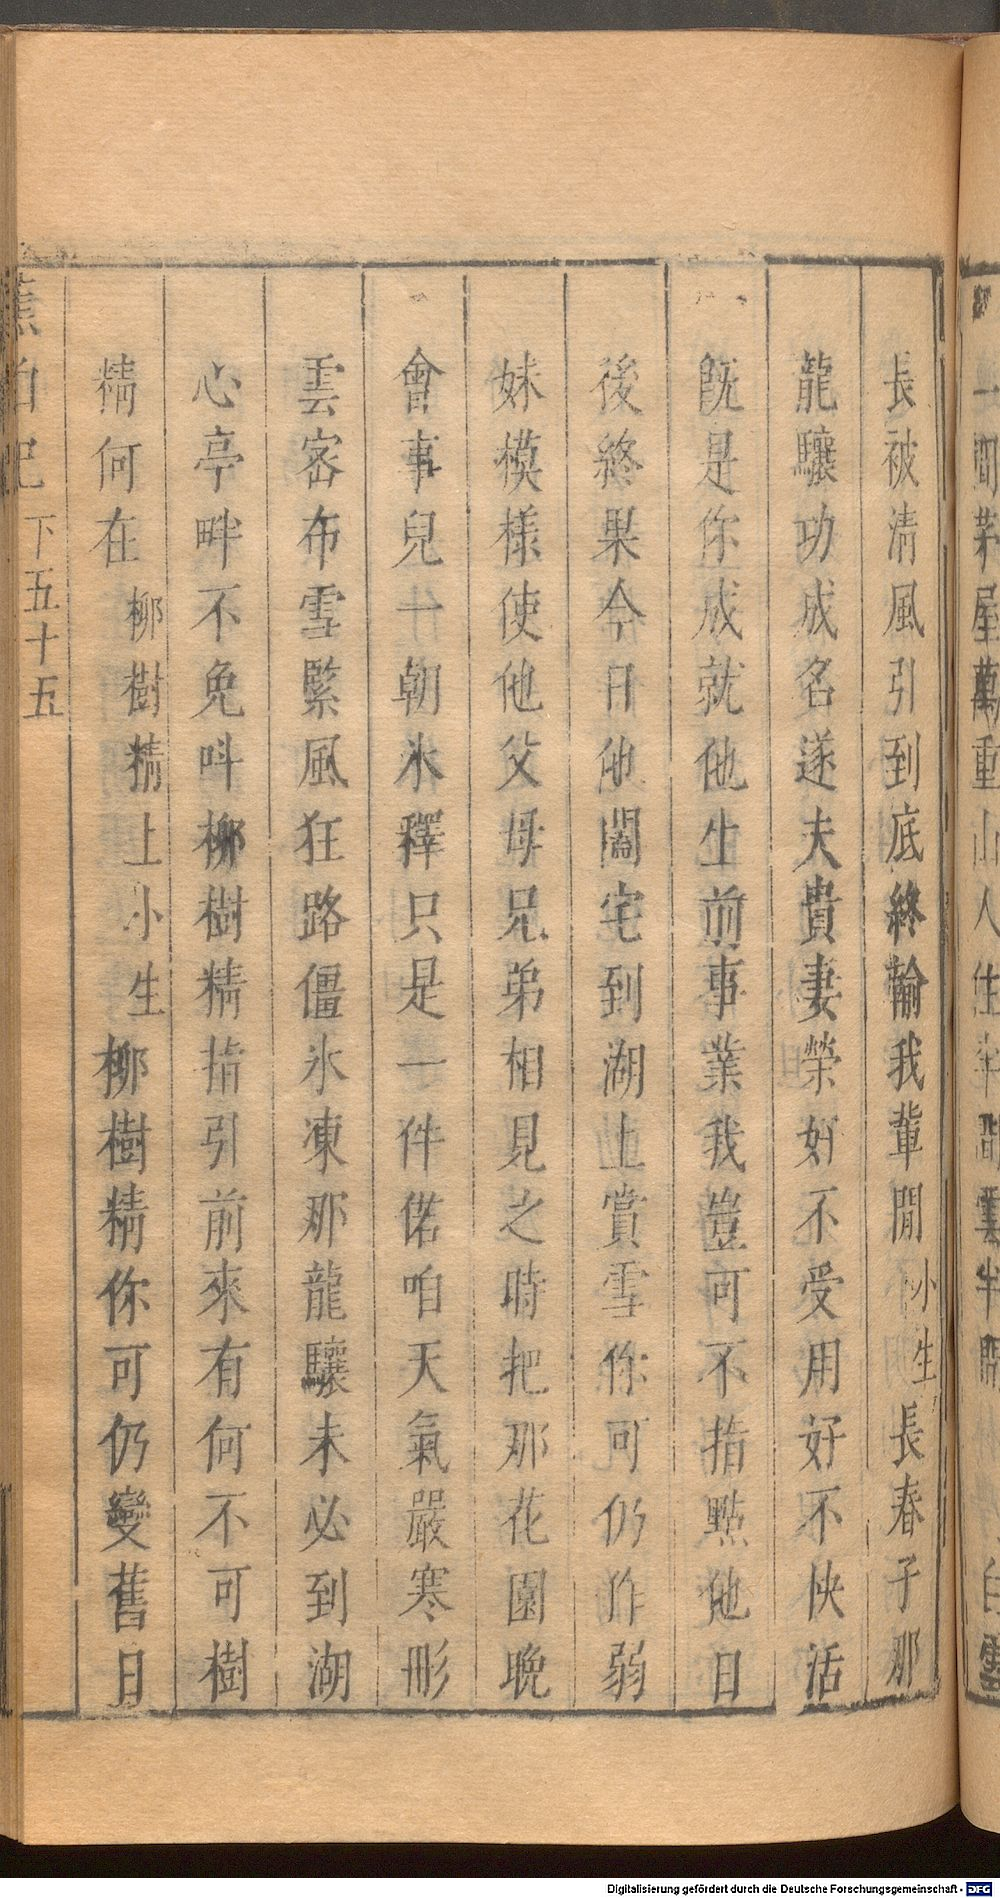 長被清風引到底終輸我輩閒小生長春子那
龍驤功成名遂夫貴妻榮好不受用好不快活
旣是你成就他生前事業我豈可不指點他日
後終果今日他闔宅到湖上賞雪你可仍作弱
妹模樣使他父母兄弟相見之時把那花園晚
會事兒一朝氷釋只是一件偌咱天氣嚴寒彤
雲密布雪緊風狂路僵氷凍那龍驤未必到湖
心亭畔不免呌柳樹精指引前來有何不可樹
精何在柳樹精上小生柳樹精你可仍變舊日
蕉帕記 下 五十五